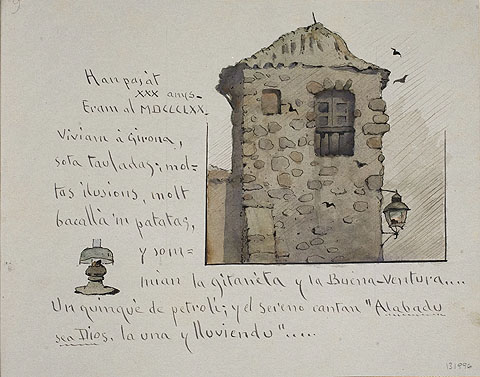 Han passat
XXX anys_
Eram al MDCCCLXX_
Viviam á Girona,
sota tauladas; mol=
tas ilusions, molt
bacallá 'm patatas,
y som=
niian la gitaneta y la Buena-Ventura....
Un quinqué de petroli; y el sereno cantan "Alabadu
sea Dios, la una y lluviendu".....
131996